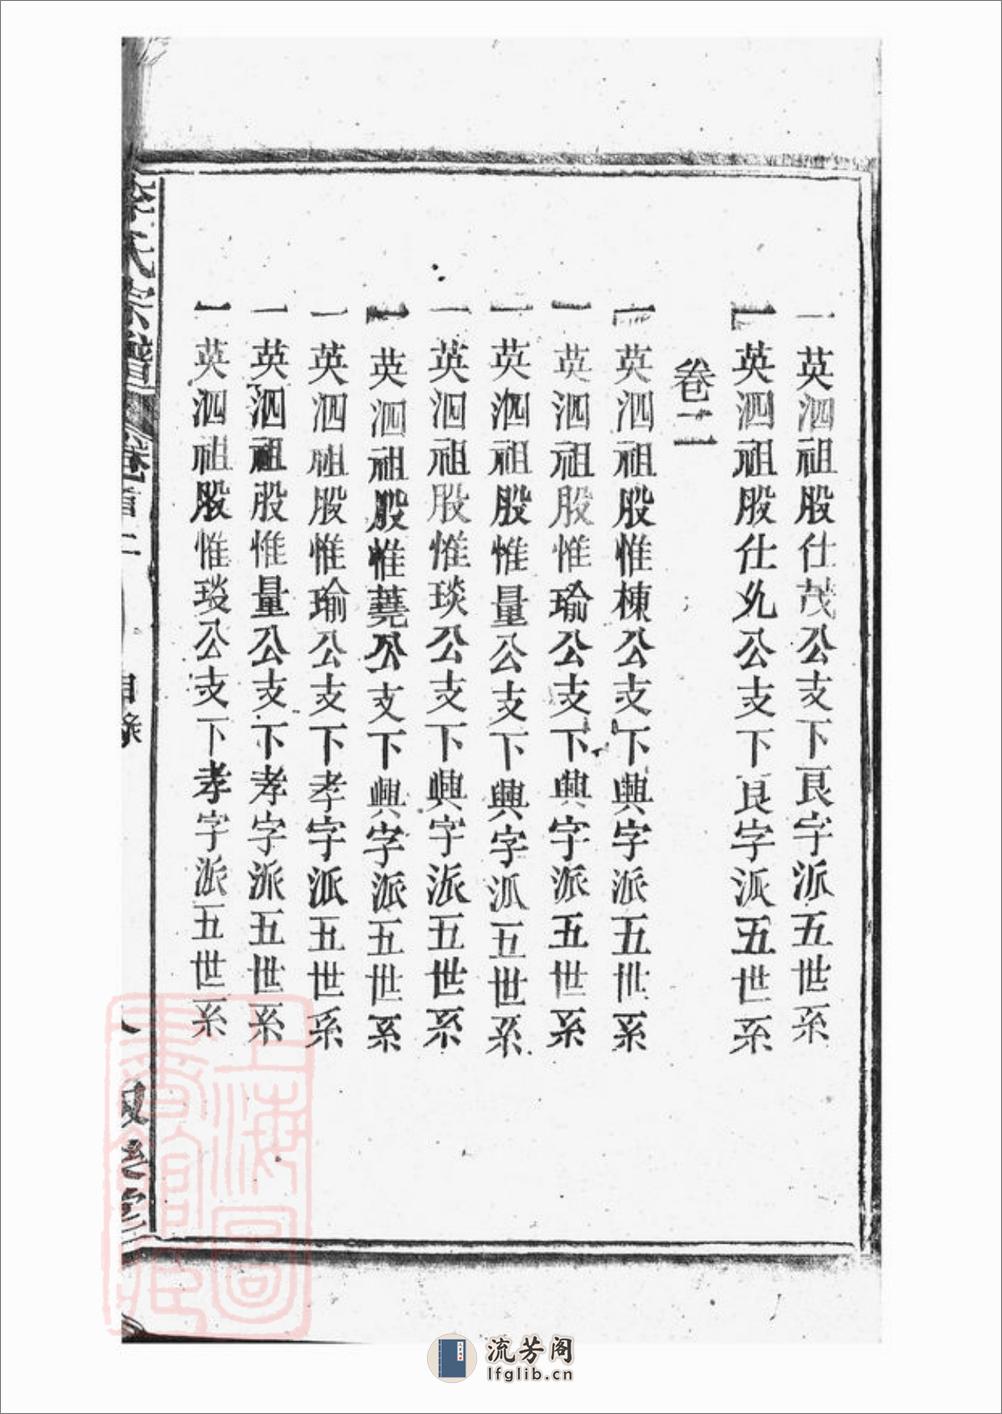 一英泗祖股仕茂公支下良字派五世系
一英泗祖股仕允公支下良字派五世系
卷二
一英泗祖股惟棟公支下興字派五世系
一英泗祖股惟瑜公支下興字派五世系
一英泗祖股惟量公支下興字派五世系
一英泗祖股惟琰公支下興字派五世系
一英泗祖股惟蕘公支下興字派五世系
一英泗祖股惟瑜公支下孝字派五世系
一英泗祖股惟量公支下孝字派五世系
一英泗祖股惟琰公支下孝字派五世系
氏宗譜 卷首二 目錄 八
上海圖書館藏
流芳阁
lfglib.cn